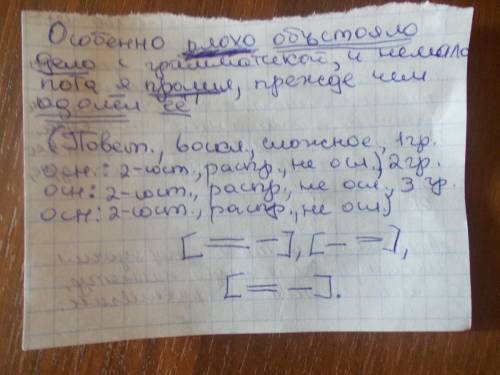 Особенно плохо обстояло
дело с грамматикой, и немало
пота я пролил, прежде чем
одолел её
(Повест., воскл., сложное, 1гр.
осн.: 2-сост., распр., не осл.) 2гр.
осн: 2-сост., распр., не осл., 3 гр.
осн: 2-сост., распр., не осл)
[= –], [– =],
[= –].